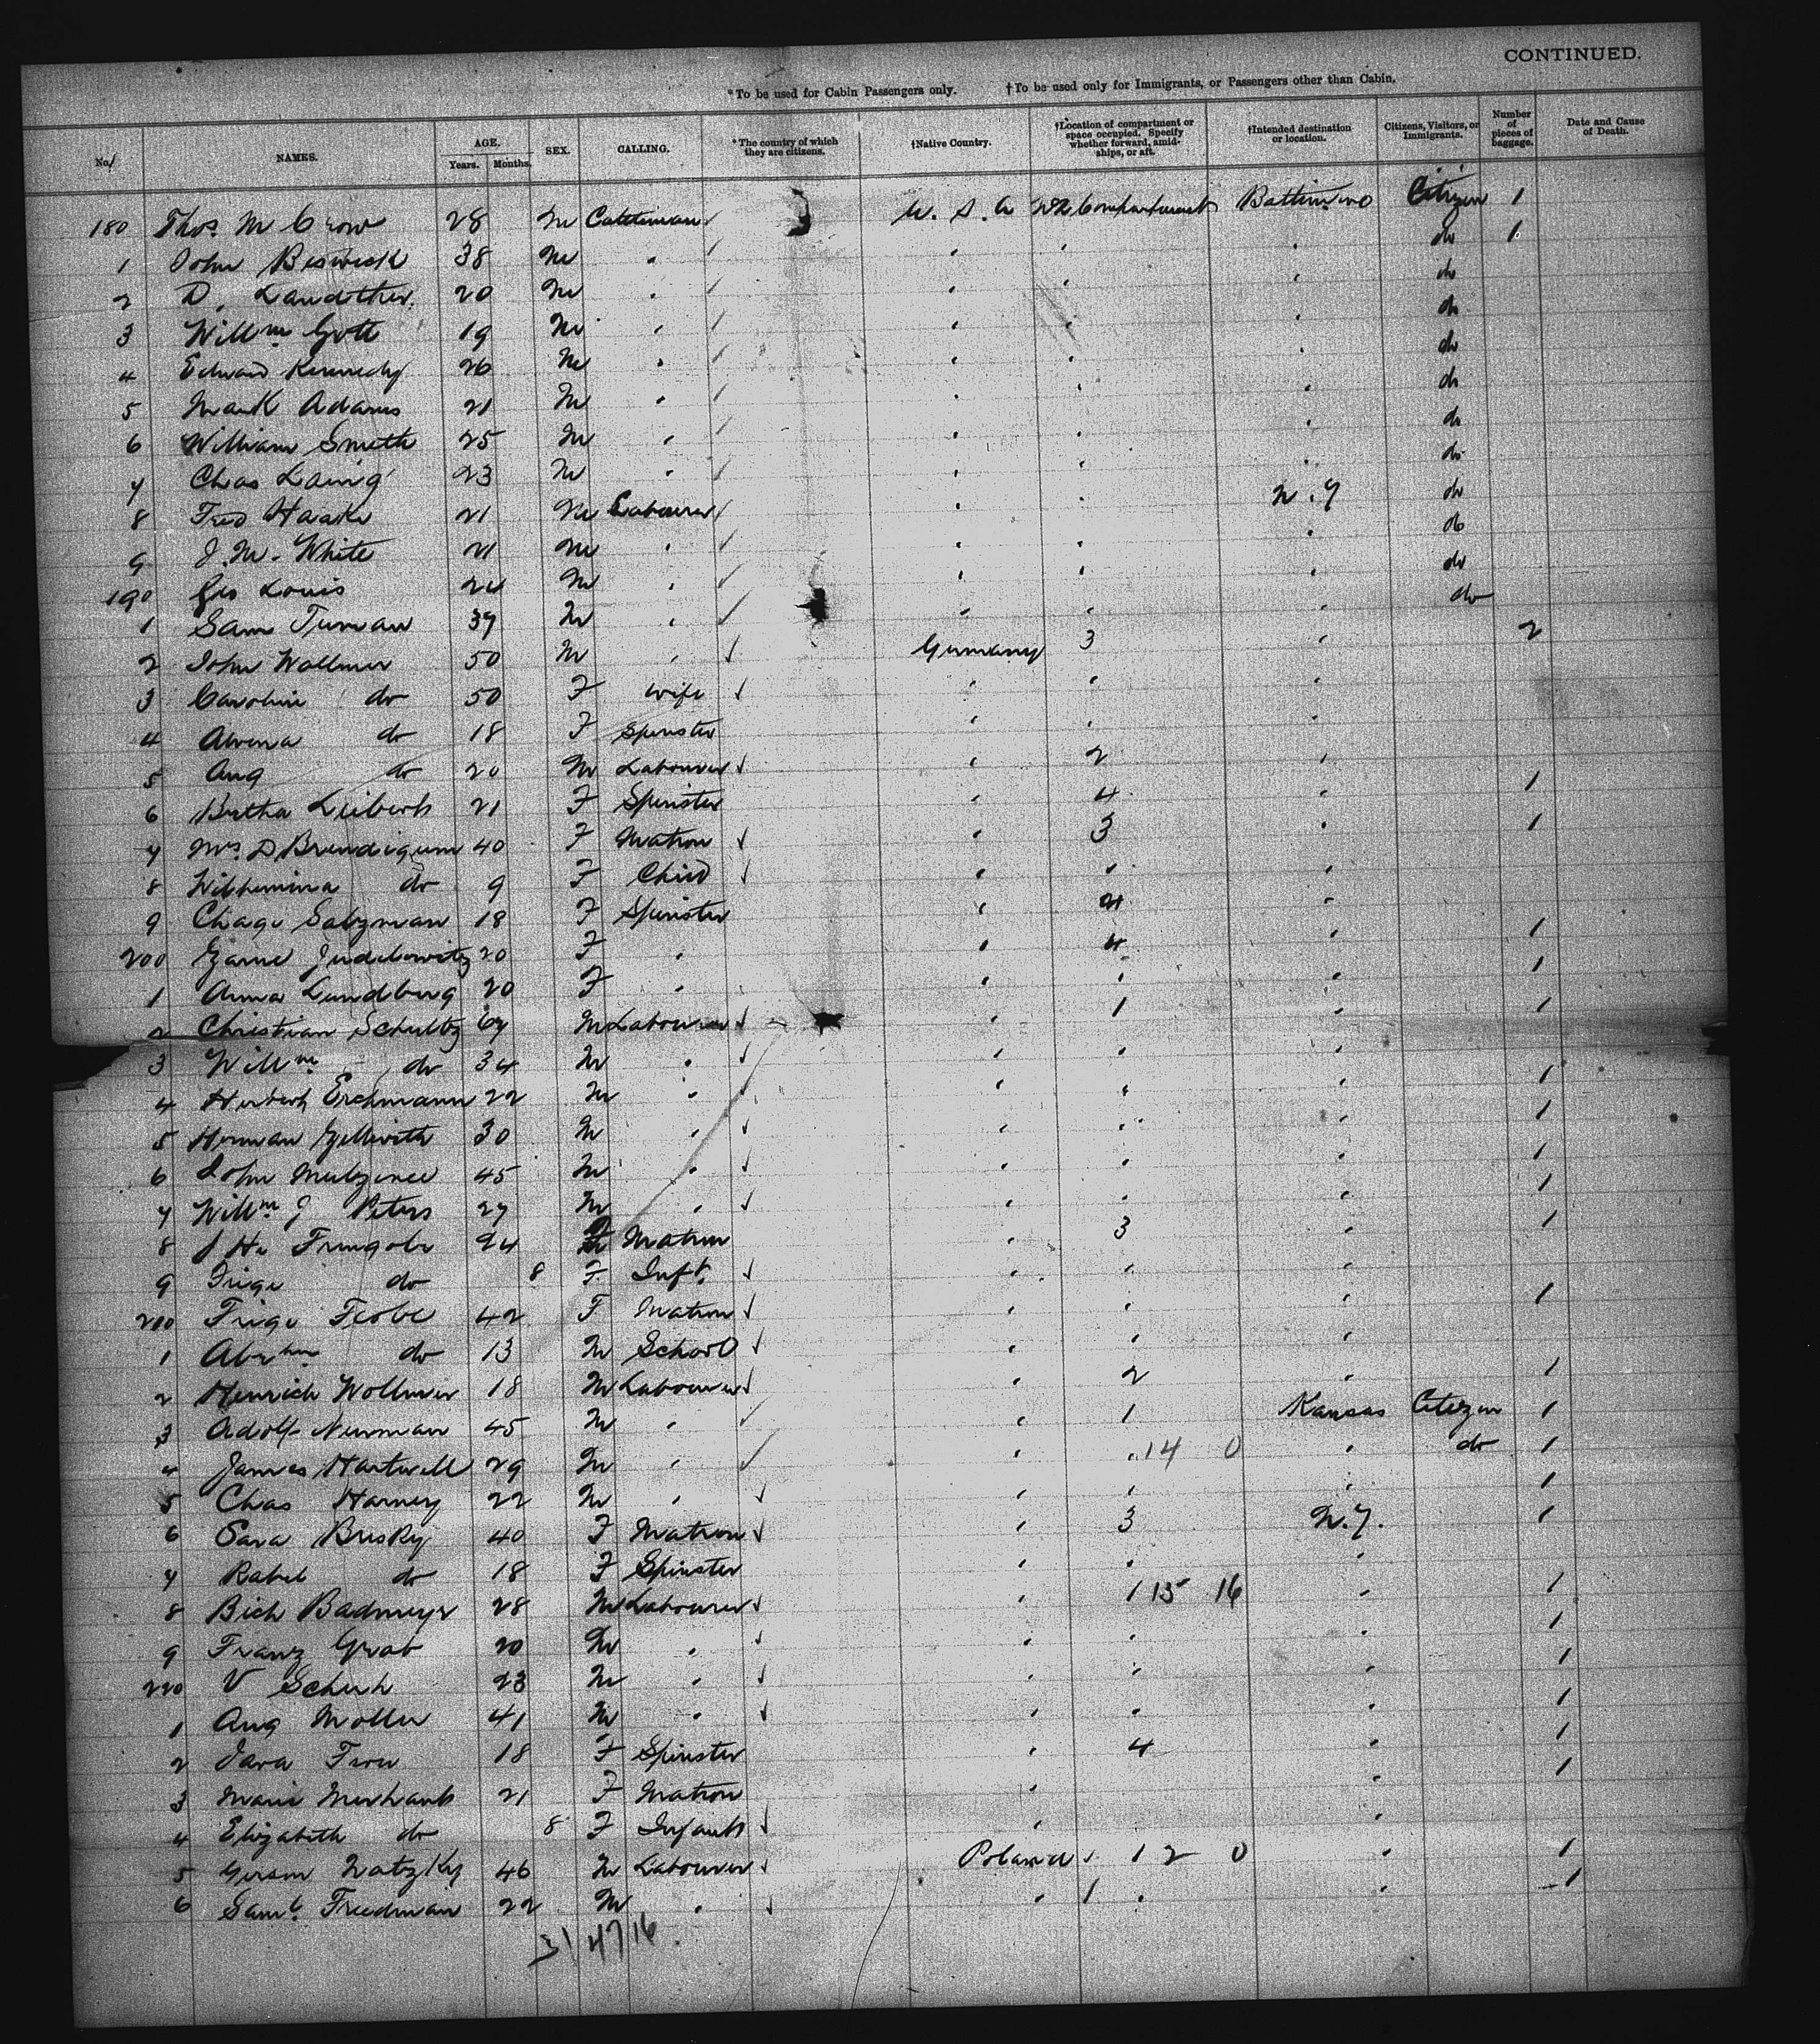 CONTINUED.
*To be used for Cabin Passengers only. †To be used only for Immigrants, or Passengers other than Cabin.
No. NAMES. AGE. Years. Months. SEX. CALLING. *The country of which they are citizens. †Native Country. †Location of compartment or space occupied. Specify whether forward, amidships, or aft. †Intended destination or location. Citizens, Visitors, or Immigrants. Number of pieces of baggage. Date and Cause of Death.
180 Thos. 28 M Cattleman U. S. A Citizen 1
1 John Beswick 38 M " " " " do 1
2 D. 20 M " " " " do
3 Willm Gott 19 M " " " " do
4 Edward Kennedy 26 M " " " " do
5 Mark Adams 21 M " " " " do
6 William Smith 25 M " " " " do
7 Chas Laing 23 M " " " " do
8 Fred Haake 21 M Labourer " " N.Y do
9 J. M. White 21 M " " " " do
190 Geo Louis 24 M " " " " do
1 Sam 37 M " " " " do
2 John Wollmer 50 M " Germany 3 " 2
3 Caroline do 50 F wife " " "
4 Alvena do 18 F Spinster " " "
5 Aug do 20 M Labourer " 2 "
6 Bertha 21 F Spinster " 4 " 1
7 Mrs D 40 F Matron " 3 " 1
8 Wilhemina do 9 F Child " " "
9 Chage Salzman 18 F Spinster " 4 "
200 Judelowitz 20 F " " 4 " 1
1 Anna Lundberg 20 F " " " " 1
2 Christian Schultz 67 M Labourer " 1 " 1
3 Willm do 34 M " " " "
4 Erchmann 22 M " " " " 1
5 Herman 30 M " " " " 1
6 John 45 M " " " " 1
7 Willm J Peters 27 M " " " " 1
8 24 F Matron " 3 " 1
9 Frige do 8 F Inft. " " "
210 Frige 42 F Matron " " " 1
1 Abrhm do 13 M School " " "
2 Henrich Wollmer 18 M Labourer " 2 " 1
3 Adolf Newman 45 M " " 1 Kansas Citizen 1
4 James Hartwell 29 M " " " 14 0 " do 1
5 Chas Harney 22 M " " " " 1
6 Sara Brisky 40 F Matron " 3 N.Y. 1
7 Rahel do 18 F Spinster " " "
8 Rich Badmeyr 28 M Labourer " 1 15 16 " 1
9 Franz Grab 20 M " " " " 1
220 V 23 M " " " " 1
1 Aug Moller 41 M " " " " 1
2 18 F Spinster " 4 " 1
3 Marie 21 F Matron " " 1
4 Elizabeth do 8 F Infant " "
5 46 M Labourer Poland 1 2 0 " 1
6 Saml. Freedman 22 M " " 1 " " 1
31 47 16